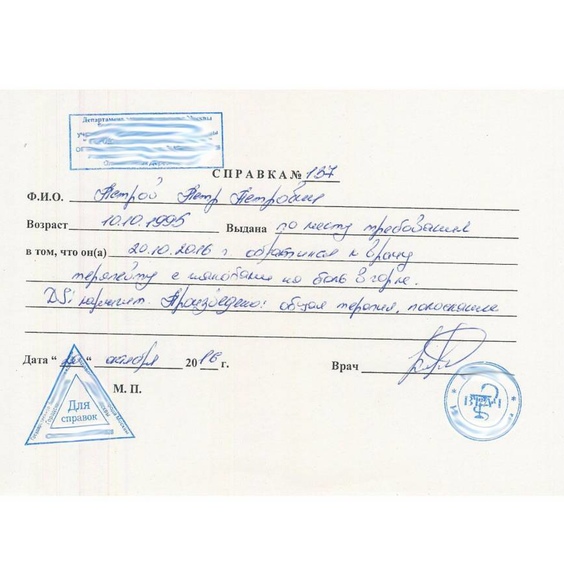 Департамен Москвы
СПРАВКА № 137
Ф.И.О. Петров Петр Петрович
Возраст 10.10.1995 Выдана по месту требования
в том, что он(а) 20.10.2016 г. обратился к врачу
терапевту с жалобами на боль в горле.
DS: Произведено: общая терапия, полоскание
Дата “ “ октября 2016 г. Врач
М. П.
Для
справок
ВРАЧ